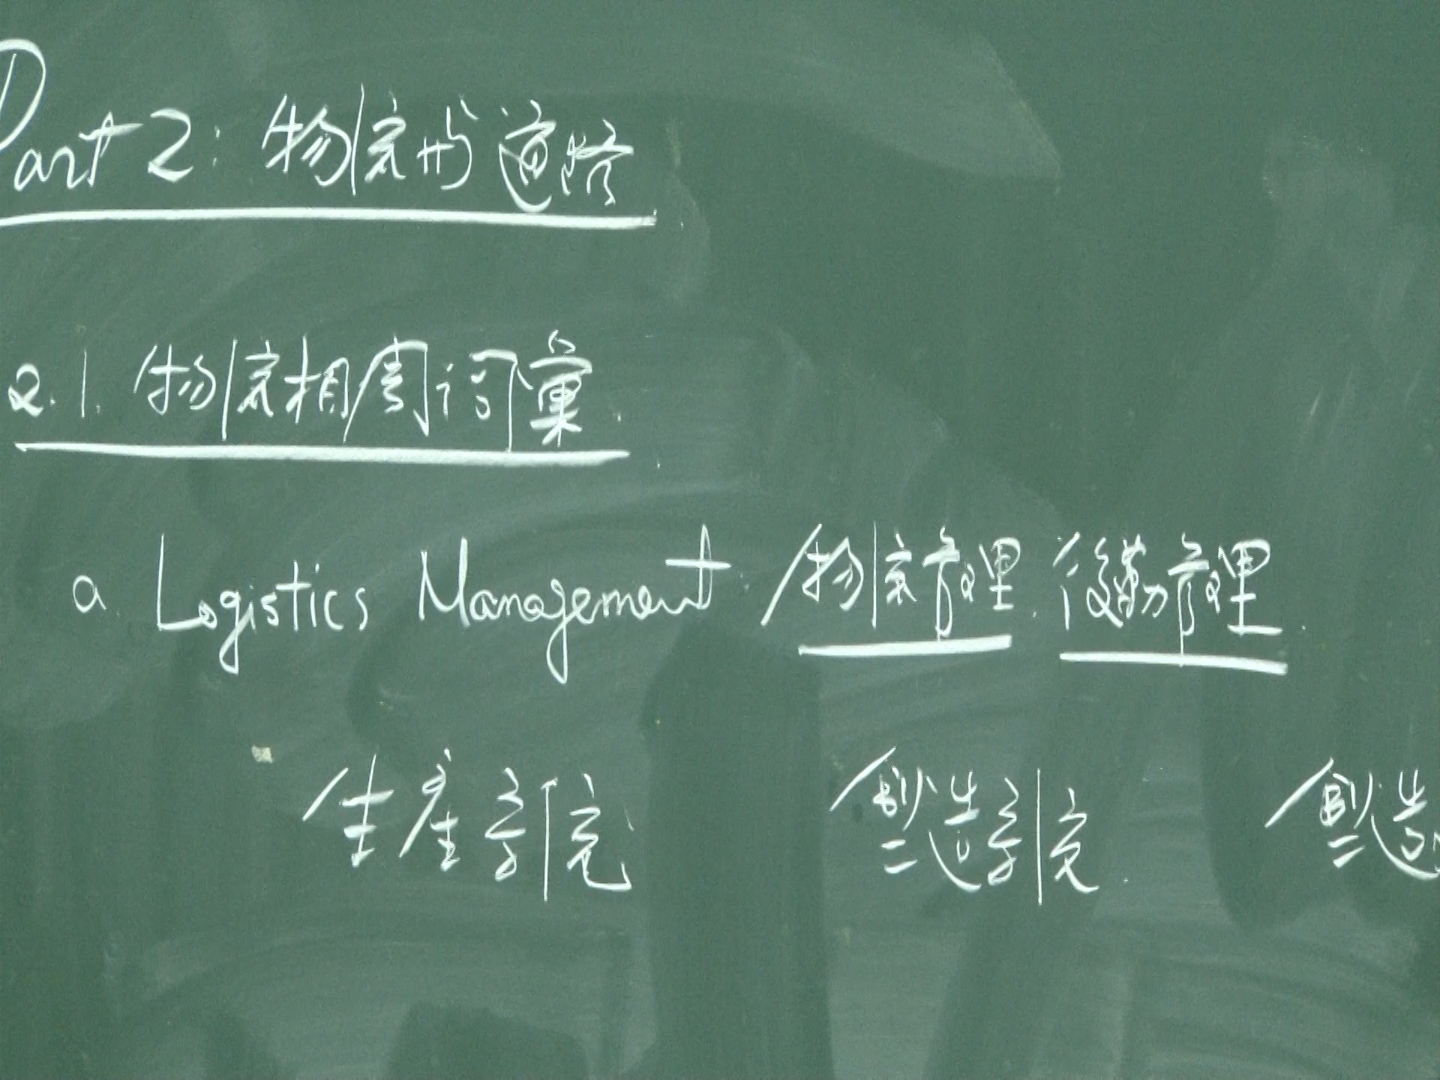 Part 2: 物流的道路
2.1. 物流相关词汇
a. Logistics Management 物流管理. 後勤管理.
生產系統 製造系統 製造